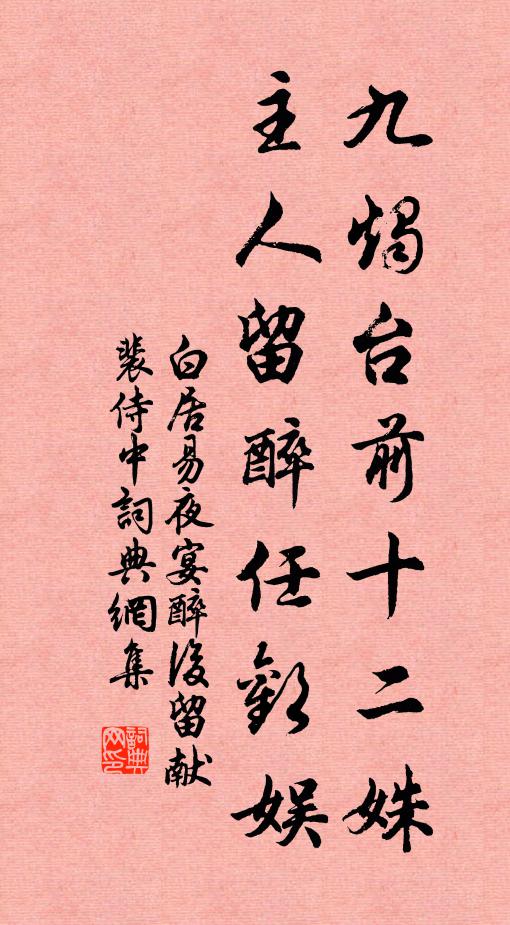 九燭台前十二姝
主人留醉任歡娛
白居易夜宴醉後留献
裴侍中詞典網集
詞典
网印